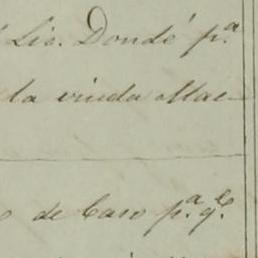 Lic. Dondé p.ª
la viuda Mac-
de Caso p.ª q.e